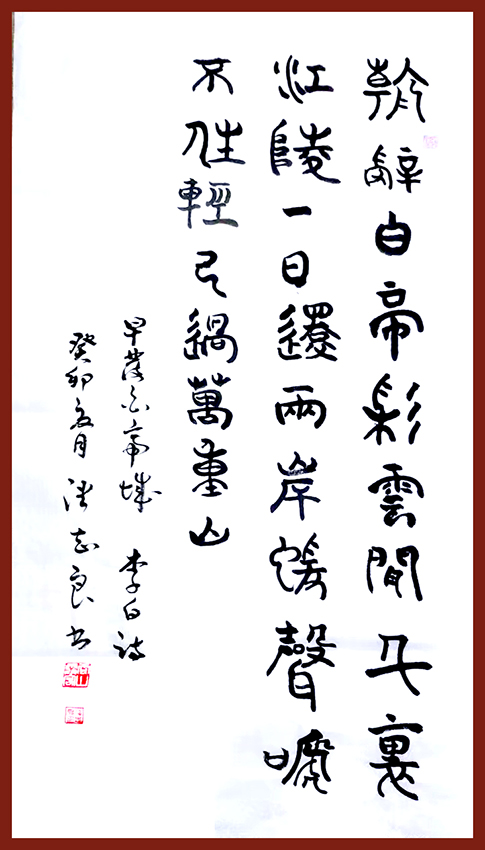 朝辭白帝彩雲間千裏
江陵一日還兩岸猿聲啼
不住輕舟過萬重山
早發白帝城 李白詩
癸卯夏月 志良书